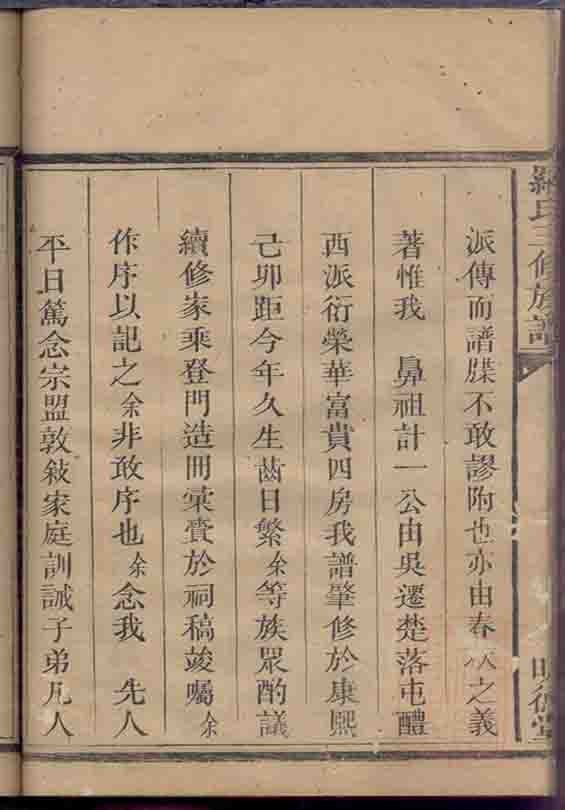 羅氏三修族譜
明德堂
派傳而譜牒不敢謬附也亦由春秋之義
著惟我 鼻祖計一公由吳遷楚落屯醴
西派衍榮華富貴四房我譜肇修於康熙
己卯距今年久生齒日繁余等族眾酌議
續修家乘登門造冊彙賫於祠稿竣囑余
作序以記之余非敢序也余念我 先人
平日篤念宗盟敦敍家庭訓誡子弟凡人